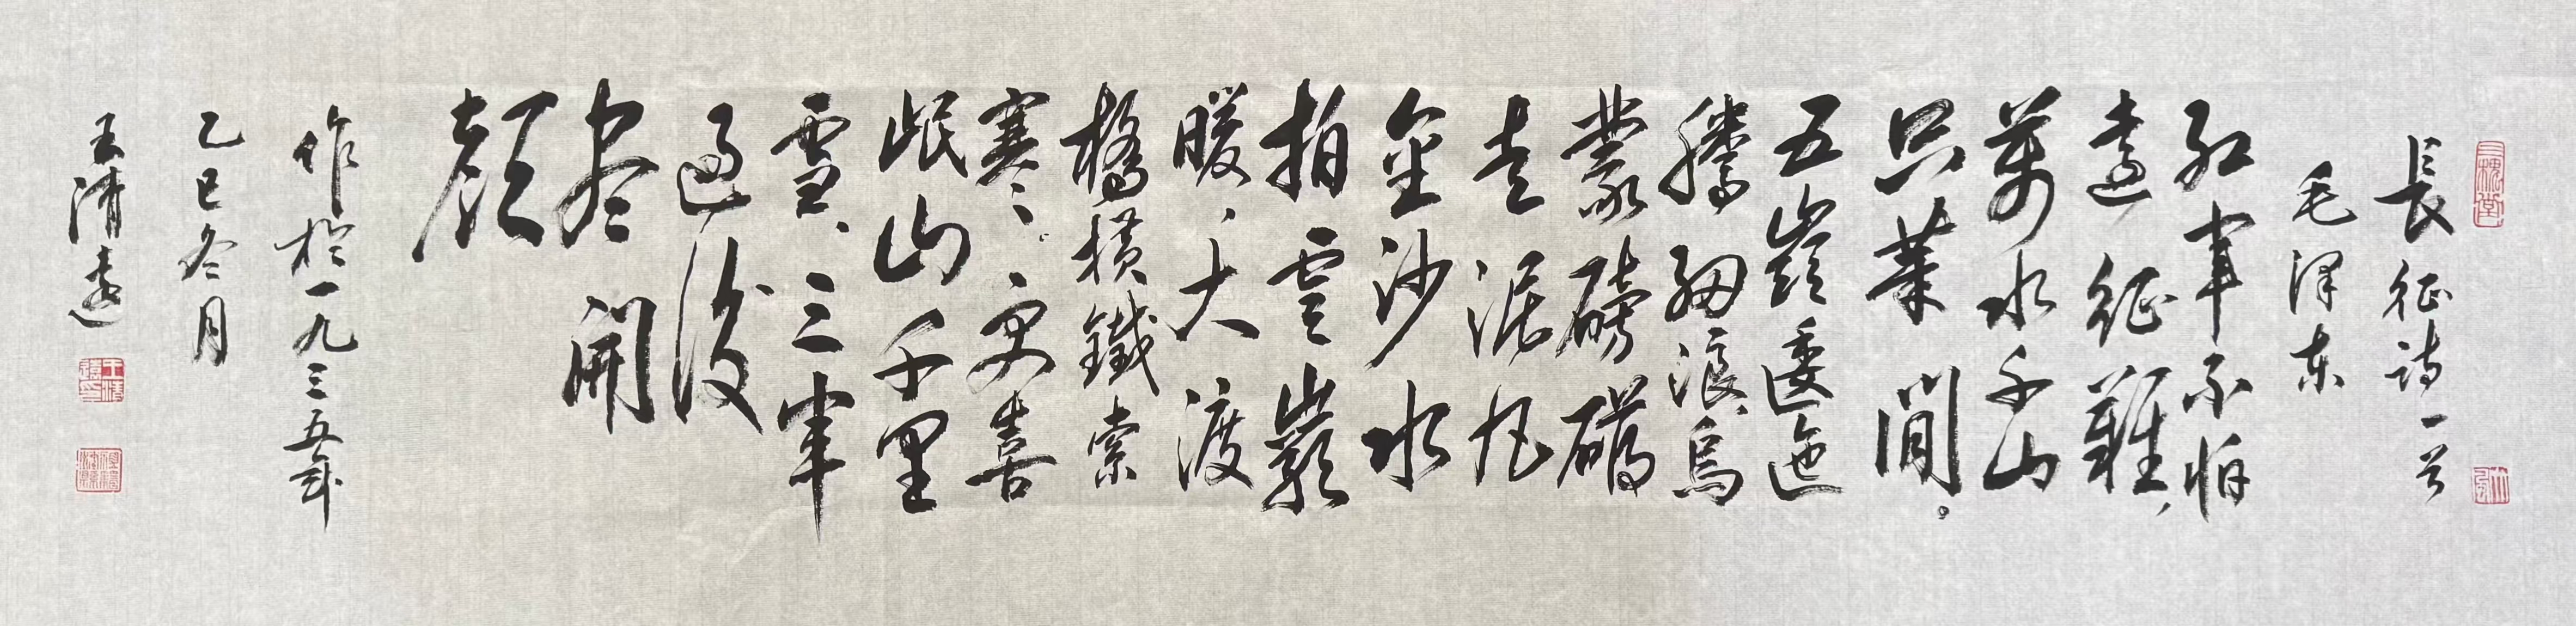 三槐堂
長征诗一首
毛泽东
红軍不怕
遠征難，
萬水千山
只等閒。
五嶺逶迤
騰細浪，烏
蒙磅礴
走泥丸
金沙水
拍雲巖
暖，大渡
橋橫鐵索
寒。更喜
岷山千里
雪，三軍
過後
尽開
顏
作於一九三五年
乙巳冬月
王清遠
王清遠印